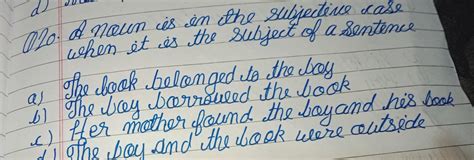 d)
Q20. A noun is in the subjective case
when it is the subject of a sentence
a) The book belonged to the boy
b) The boy borrowed the book
c) Her mother found the boy and his book
d) The boy and the book were outside